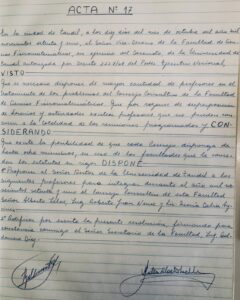 ACTA Nº 17
En la ciudad de Tandil, a los diez días del mes de octubre del año mil
novecientos setenta y uno, el Señor Decano de la Facultad de Cien-
cias Fisicomatemáticas, en ejercicio del Rectorado de la Universidad de
Tandil autorizada por Decreto del Poder Ejecutivo Nacional.
VISTO
Que es necesario disponer de mayor cantidad de profesores en el
tratamiento de los problemas del Consejo Consultivo de la Facultad de
Ciencias Fisicomatemáticas. Que por razones de superposición
de horarios y actividades existen profesores que no pueden concu-
rrir a la totalidad de las reuniones programadas y CON-
SIDERANDO
Que existe la posibilidad de que cada Consejo disponga de
hasta ocho miembros, en uso de las facultades que le conce-
den los estatutos en vigor DISPONE
1º Proponer al Señor Rector de la Universidad de Tandil a los
siguientes profesores para integrar durante el año mil no-
vecientos setenta y uno el Consejo Consultivo de esta Facultad:
Señor Alberto, Ing. Roberto y Sra.
2º Notifíquese por escrito la presente resolución, firmando para
constancia conmigo el Señor Secretario de la Facultad, Ing. Gui-
llermo Díaz.